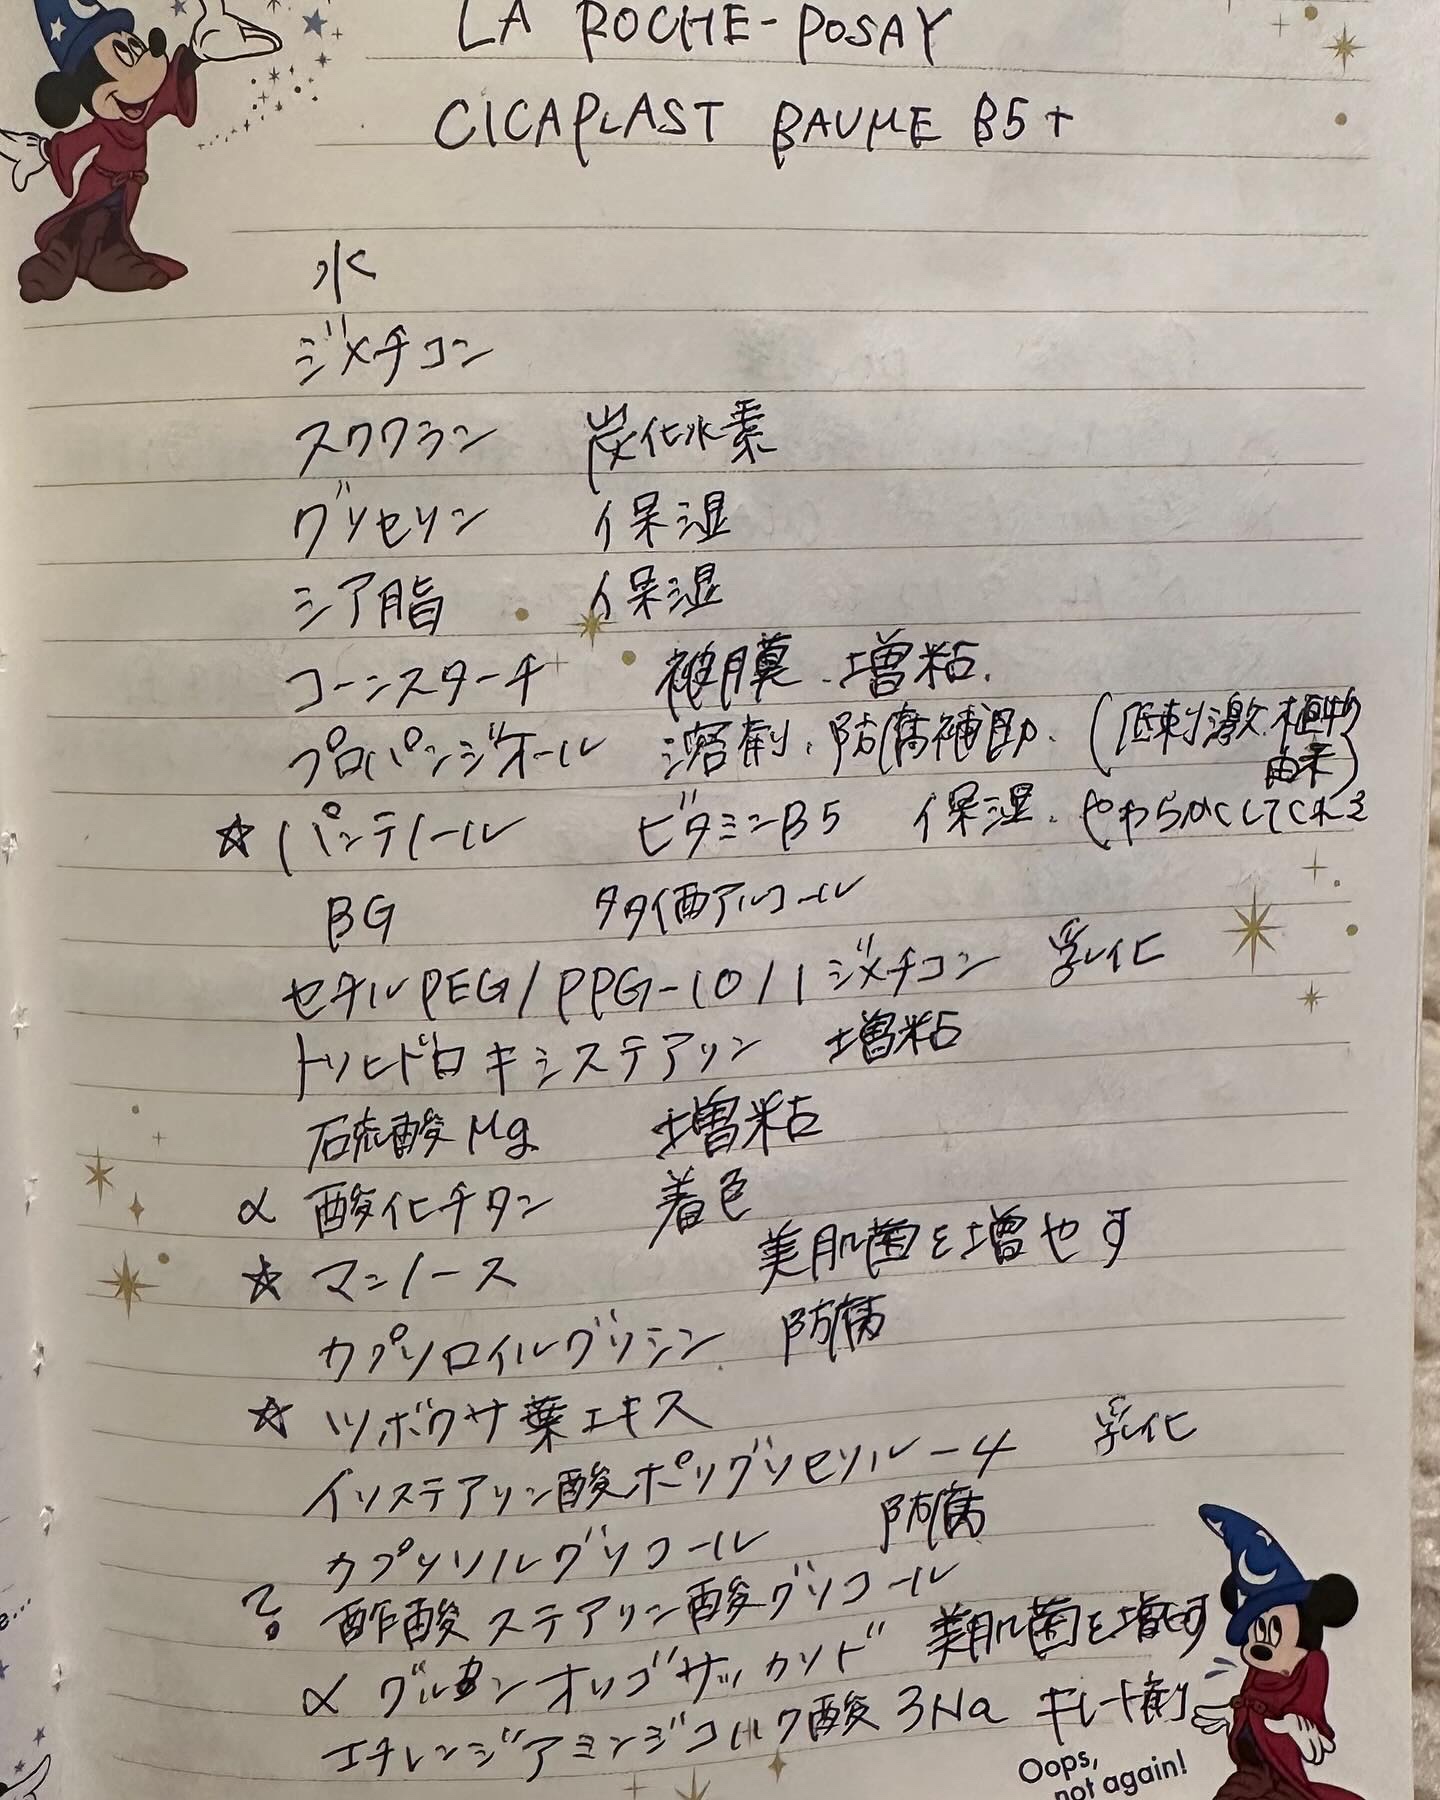 LA ROCHE-POSAY
CICAPLAST BAUME B5+
水
ジメチコン
スクワラン 炭化水素
グリセリン 保湿
シア脂 保湿
コーンスターチ 被膜、増粘、
プロパンジオール 溶剤、防腐補助、(低刺激、植物由来)
☆パンテノール ビタミンB5 保湿、やわらかくしてくれる
BG 多価アルコール
セチルPEG/PPG-10/1ジメチコン 乳化
トリヒドロキシステアリン 増粘
硫酸Mg 増粘
α 酸化チタン 着色
☆ マンノース 美肌菌を増やす
カプリロイルグリシン 防腐
☆ ツボクサ葉エキス
イソステアリン酸ポリグリセリル-4 乳化
カプリリルグリコール 防腐
? 酢酸ステアリン酸グリコール
α グルカンオリゴサッカリド 美肌菌を増やす
エチレンジアミンジコハク酸3Na キレート剤
Oops,
not again!